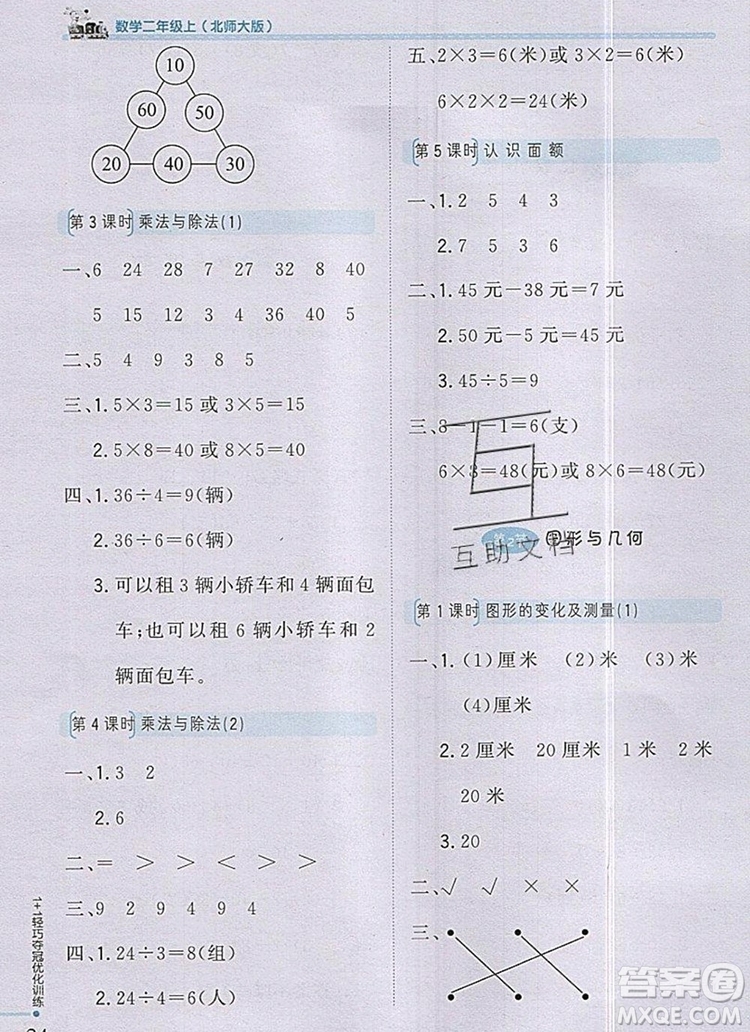 数学二年级上(北师大版)
10
60 50
20 40 30
第3课时 乘法与除法(1)
一、6 24 28 7 27 32 8 40
5 15 12 3 4 36 40 5
二、5 4 9 3 8 5
三、1.5×3=15 或 3×5=15
2.5×8=40 或 8×5=40
四、1.36÷4=9(辆)
2.36÷6=6(辆)
3.可以租 3 辆小轿车和 4 辆面包
车;也可以租 6 辆小轿车和 2
辆面包车。
第4课时 乘法与除法(2)
一、1.3 2
2.6
二、= > > < > >
三、9 2 9 4 9 4
四、1.24÷3=8(组)
2.24÷4=6(人)
五、2×3=6(米)或 3×2=6(米)
6×2×2=24(米)
第5课时 认识面额
一、1.2 5 4 3
2.7 5 3 6
二、1.45 元-38 元=7 元
2.50 元-5 元=45 元
3.45÷5=9
三、8-1-1=6(支)
6×8=48(元)或 8×6=48(元)
图形与几何
第1课时 图形的变化及测量(1)
一、1.(1)厘米 (2)米 (3)米
(4)厘米
2.2 厘米 20 厘米 1 米 2 米
20 米
3.20
二、√ √ × ×
三、
1+1轻巧夺冠优化训练
互助文档
答案圈
MXQE.COM